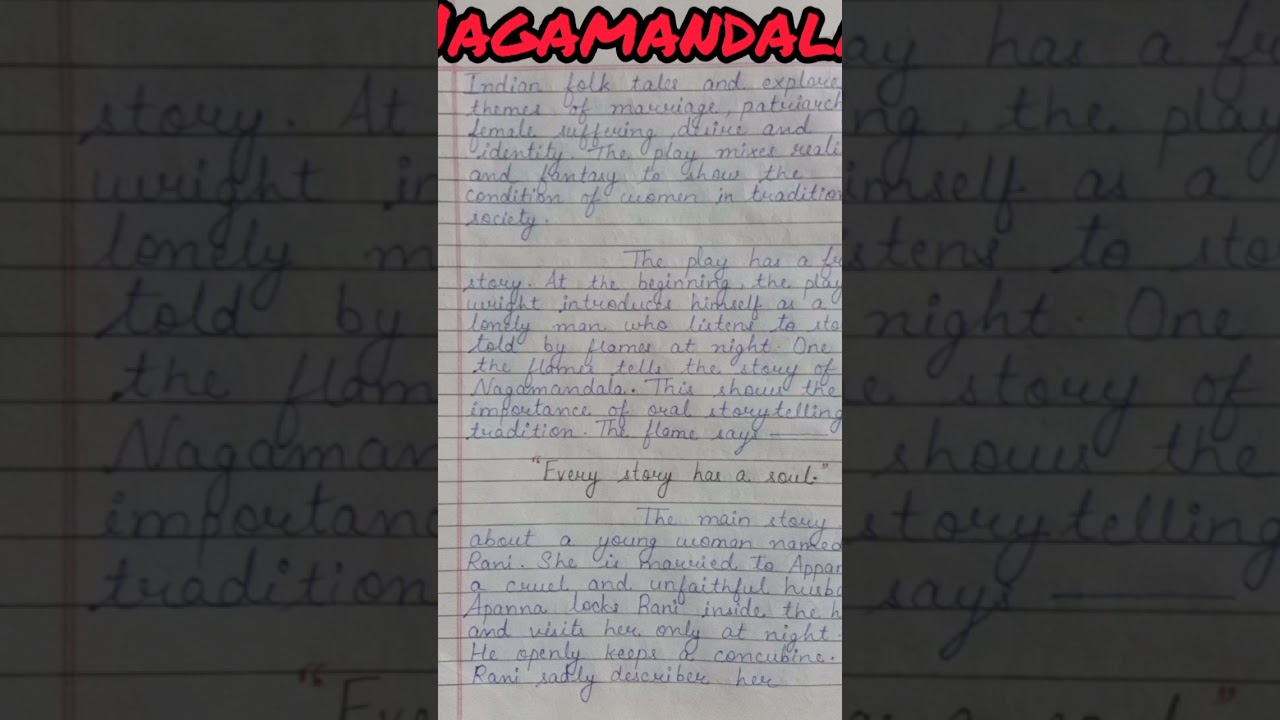 NAGAMANDALA
Indian folk tales and explore
themes of marriage, patriarch
female suffering, desire and
identity. The play mixes reali
and fantasy to show the
condition of women in tradition
society.
The play has a fr
story. At the beginning, the play
wright introduces himself as a
lonely man who listens to sto
told by flames at night. One
the flames tells the story of
Nagamandala. This shows the
importance of oral storytelling
tradition. The flame says ———
"Every story has a soul."
The main story
about a young woman named
Rani. She is married to Appan
a cruel and unfaithful husba
Apanna locks Rani inside the h
and visits her only at night.
He openly keeps a concubine.
Rani sadly describer her